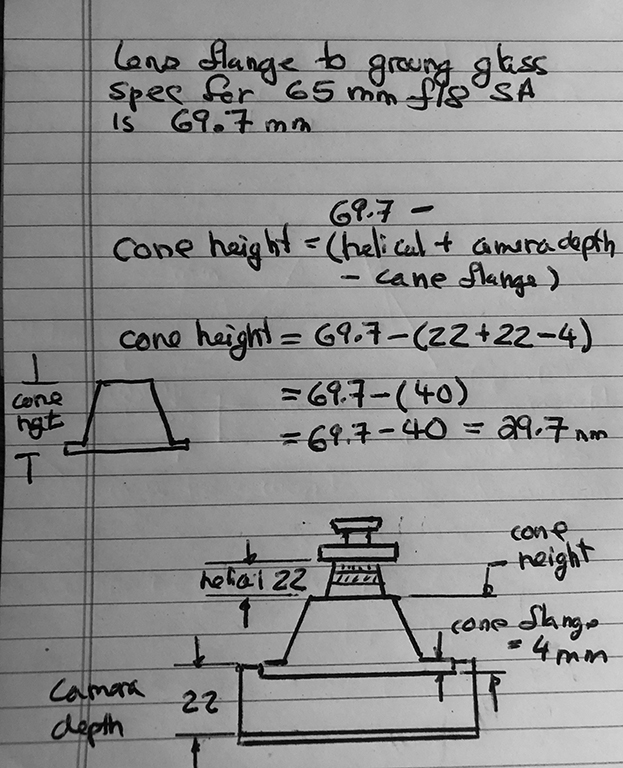 Lens flange to groung glass
spec for 65 mm f/8 SA
is 69.7 mm
69.7 -
cone height = (helical + camera depth
- cane flange)
cone height = 69.7-(22+22-4)
= 69.7-(40)
= 69.7-40 = 29.7 mm
cone
hgt
cone
height
helial 22
cone flange
= 4mm
Camara
depth
22